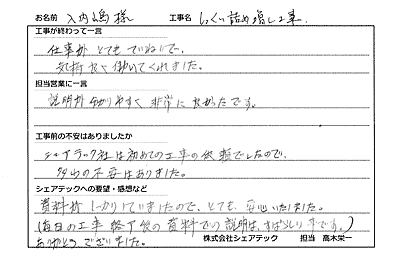 お名前 入内嶋 様 工事名 しっくい詰め増し工事
工事が終わって一言
仕事が とても ていねいで、
気持良く働いてくれました。
担当営業に一言
説明が分りやすく 非常に良かったです。
工事前の不安はありましたか
シェアテック社は初めての工事の依頼でしたので、
多少の不安はありました。
シェアテックへの要望・感想など
資料が しっかりしていましたので、とても、安心いたしました。
(毎日の工事 終了後の資料での説明は、すばらしい事です。)
ありがとうございました。 株式会社シェアテック 担当 高木栄一